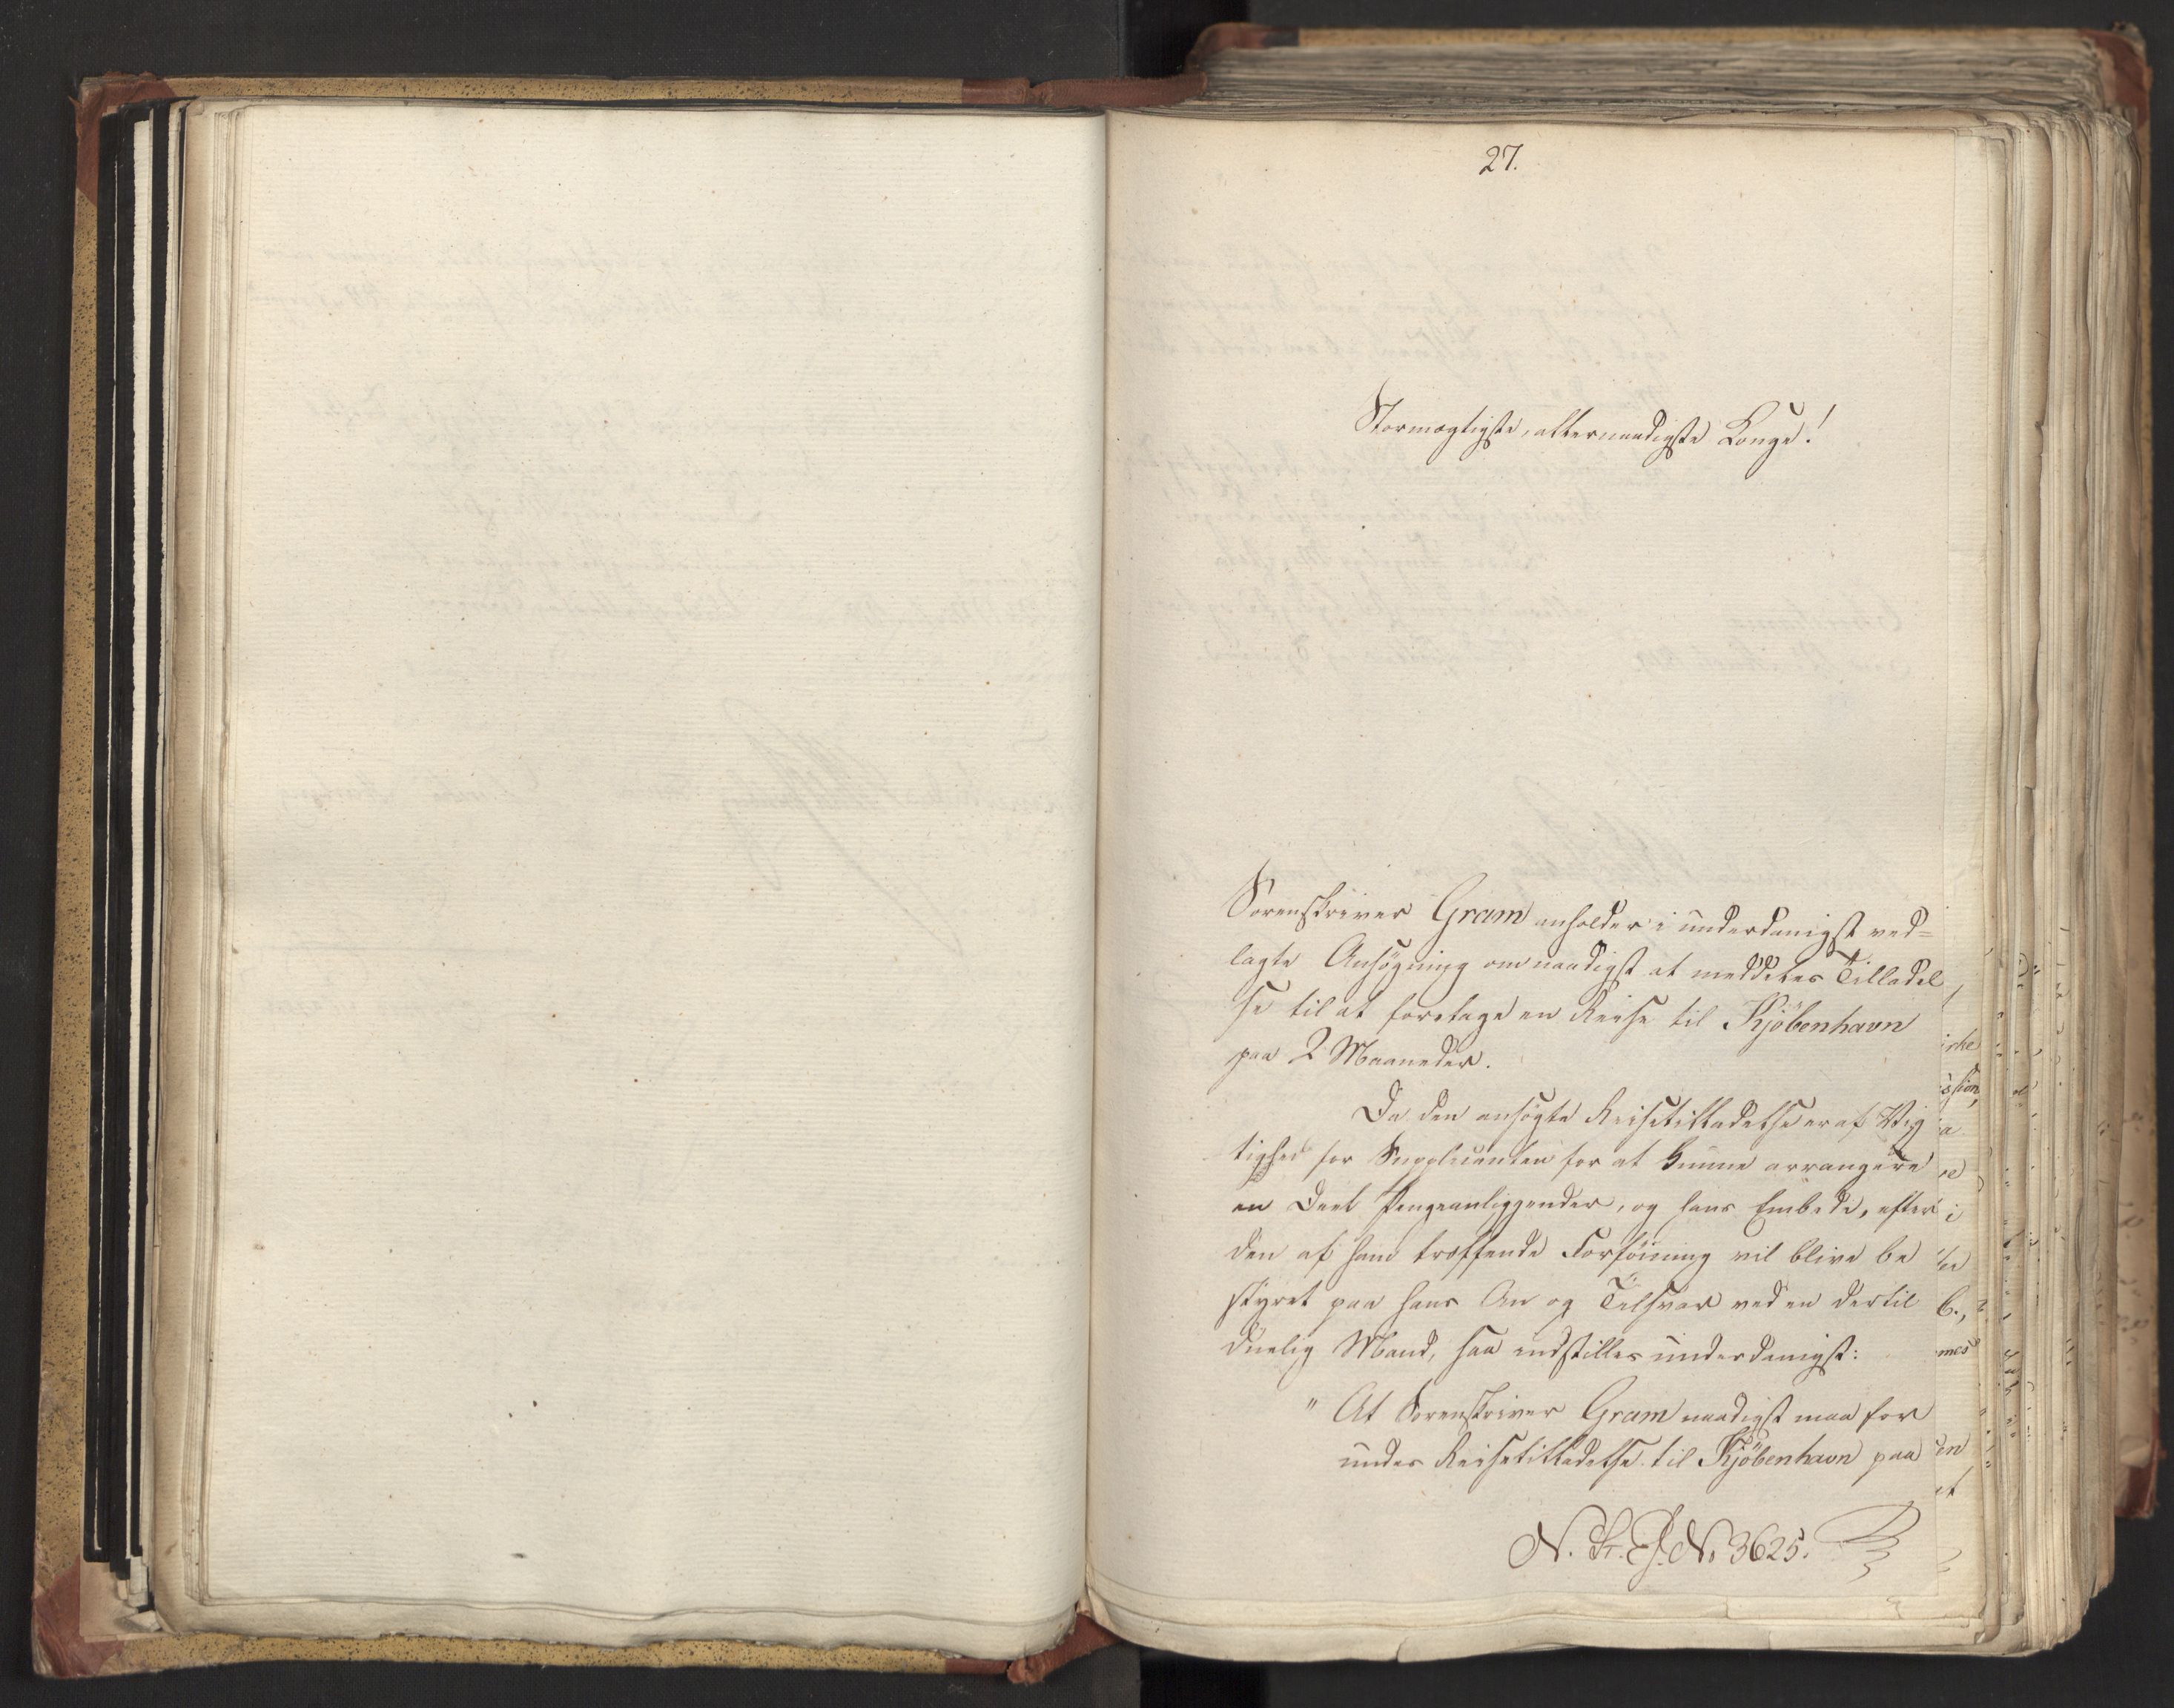 27.
Stormægtigste, allernaadigste Konge!
Sorenskriver Gram anholder i underdanigst ved=
lagte Ansögning om naadigst at meddeles Tilladel
se til at foretage en Reise til Kjöbenhavn
paa 2 Maaneder.
Da den ansögte Reisetilladelse er af Vig
tighed for Supplicanten for at kunne arrangere
en Deel Pengeanliggender, og hans Embede, efter
den af ham træffende Forföining vil blive be
styret paa hans An og Tilsvar ved en dertil
duelig Mand, saa indstilles underdanigst:
" At Sorenskriver Gram naadigst maa for
undes Reisetilladelse til Kjöbenhavn paa
N. 3625.